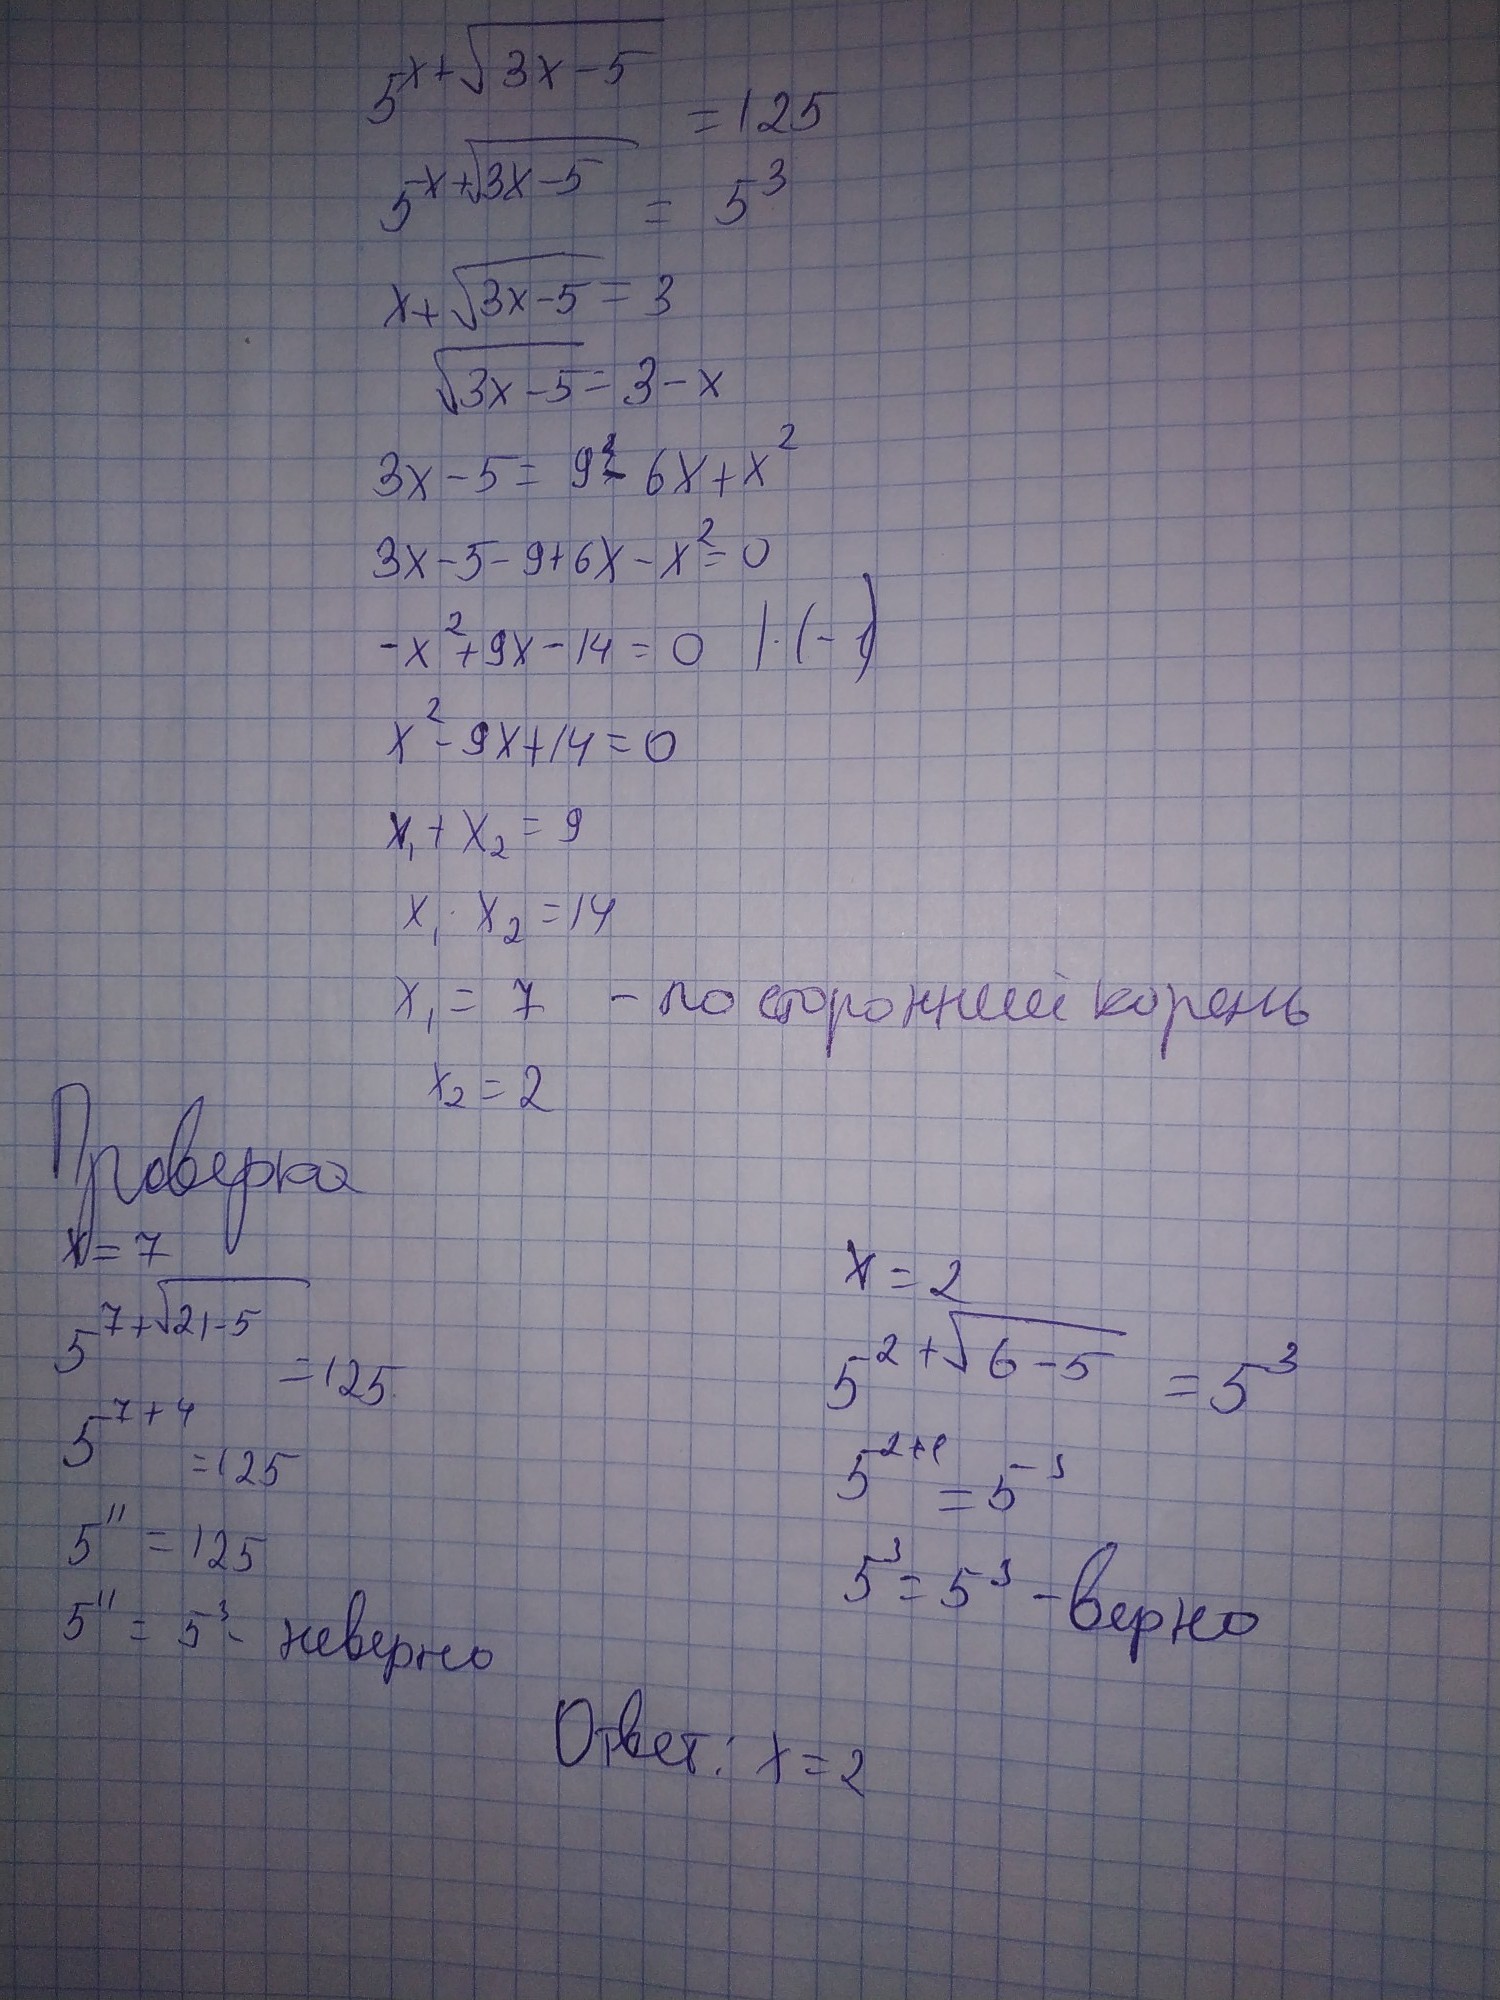 5^{x+√(3x-5)} = 125
5^{x+√(3x-5)} = 5^3
x+√(3x-5) = 3
√(3x-5) = 3-x
3x-5 = 9 - 6x + x^2
3x-5-9+6x-x^2 = 0
-x^2+9x-14 = 0 |·(-1)
x^2-9x+14 = 0
x_1 + x_2 = 9
x_1 · x_2 = 14
x_1 = 7 - посторонний корень
x_2 = 2
Проверка
x = 7
5^{7+√(21-5)} = 125
5^{7+4} = 125
5^{11} = 125
5^{11} = 5^3 - неверно
x = 2
5^{2+√(6-5)} = 5^3
5^{2+1} = 5^3
5^3 = 5^3 - верно
Ответ: x = 2